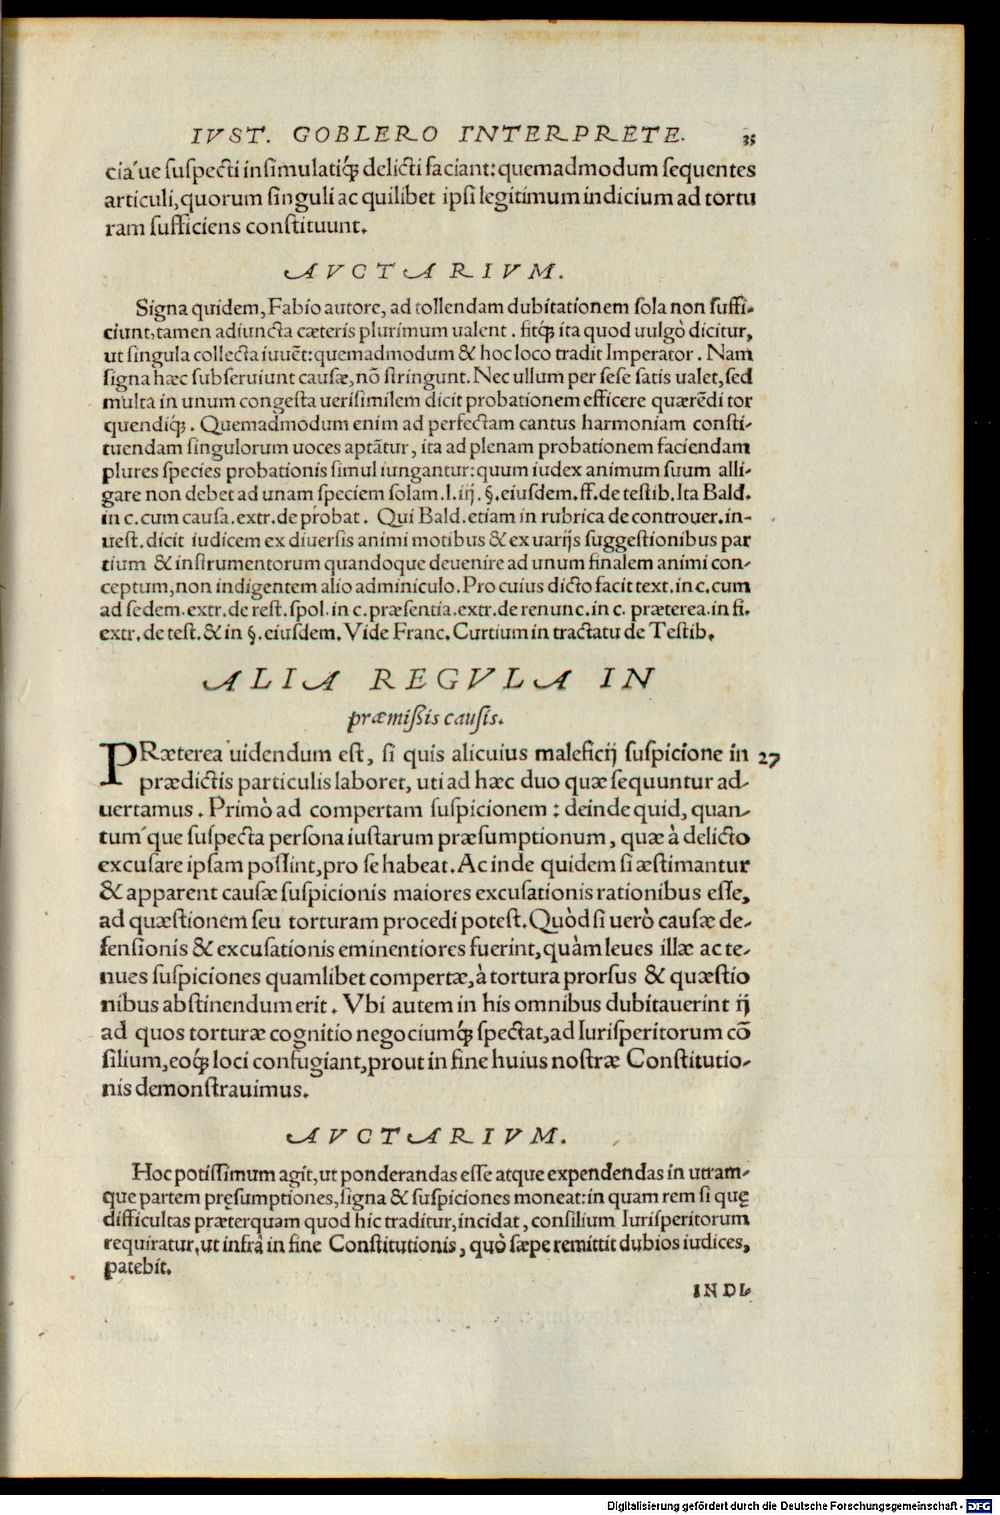 IVST. GOBLERO INTERPRETE. 35
cia'ue suspecti insimulatiq́; delicti faciant: quemadmodum sequentes
articuli, quorum singuli ac quilibet ipsi legitimum indicium ad tortu
ram sufficiens constituunt.
AVCTARIVM.
Signa quidem, Fabio autore, ad tollendam dubitationem sola non suffi-
ciunt, tamen adiuncta cæteris plurimum ualent. fitq́; ita quod uulgò dicitur,
ut singula collecta iuuẽt: quemadmodum & hoc loco tradit Imperator. Nam
signa hæc subseruiunt causæ, nõ stringunt. Nec ullum per sese satis ualet, sed
multa in unum congesta uerisimilem dicit probationem efficere quærẽdi tor
quendiq́;. Quemadmodum enim ad perfectam cantus harmoniam consti-
tuendam singulorum uoces aptãtur, ita ad plenam probationem faciendam
plures species probationis simul iungantur: quum iudex animum suum alli-
gare non debet ad unam speciem solam. l. iij. §. eiusdem. ff. de testib. Ita Bald.
in c. cum causa. extr. de probat. Qui Bald. etiam in rubrica de controuer. in-
uest. dicit iudicem ex diuersis animi motibus & ex uarijs suggestionibus par
tium & instrumentorum quandoque deuenire ad unum finalem animi con-
ceptum, non indigentem alio adminiculo. Pro cuius dicto facit text. in c. cum
ad sedem. extr. de rest. spol. in c. præsentia. extr. de renunc. in c. præterea. in fi.
extr. de test. & in §. eiusdem. Vide Franc. Curtium in tractatu de Testib.
ALIA REGVLA IN
præmissis causis.
PRæterea uidendum est, si quis alicuius maleficij suspicione in 27
prædictis particulis laboret, uti ad hæc duo quæ sequuntur ad-
uertamus. Primò ad compertam suspicionem: deinde quid, quan-
tum'que suspecta persona iustarum præsumptionum, quæ à delicto
excusare ipsam possint, pro se habeat. Ac inde quidem si æstimantur
& apparent causæ suspicionis maiores excusationis rationibus esse,
ad quæstionem seu torturam procedi potest. Quòd si uerò causæ de-
fensionis & excusationis eminentiores fuerint, quàm leues illæ ac te-
nues suspiciones quamlibet compertæ, à tortura prorsus & quæstio
nibus abstinendum erit. Vbi autem in his omnibus dubitauerint ij
ad quos torturæ cognitio negociumq́; spectat, ad Iurisperitorum cõ
silium, eoq́; loci confugiant, prout in fine huius nostræ Constitutio-
nis demonstrauimus.
AVCTARIVM.
Hoc potissimum agit, ut ponderandas esse atque expendendas in utram-
que partem pręsumptiones, signa & suspiciones moneat: in quam rem si quę
difficultas præterquam quod hic traditur, incidat, consilium Iurisperitorum
requiratur, ut infrà in fine Constitutionis, quò sæpe remittit dubios iudices,
patebit.
INDI-
Digitalisierung gefördert durch die Deutsche Forschungsgemeinschaft - DFG